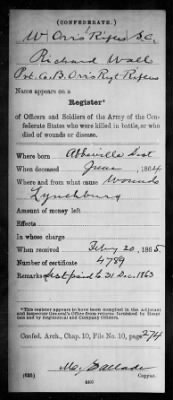 (CONFEDERATE.)
W Orr's Rifles S.C.
Richard Wall
Pvt. Co. B. Orr's Regt Riflers
Name appears on a
Register*
of Officers and Soldiers of the Army of the Confederate States who were killed in battle, or who
died of wounds or disease.
Where born Abbeville Dist
When deceased June , 1864
Where and from what cause Wounds
Lynchburg
Amount of money left
Effects
In whose charge
When received Feby 20, 1865
Number of certificate 4789
Remarks Last paid to 31 Dec. 1863
*This register appears to have been compiled in the Adjutant
and Inspector General's Office from returns furnished by Hospitals
and by Regimental and Company Officers.
Confed. Arch., Chap. 10, File No. 10, page 274
(635)
Copyist.